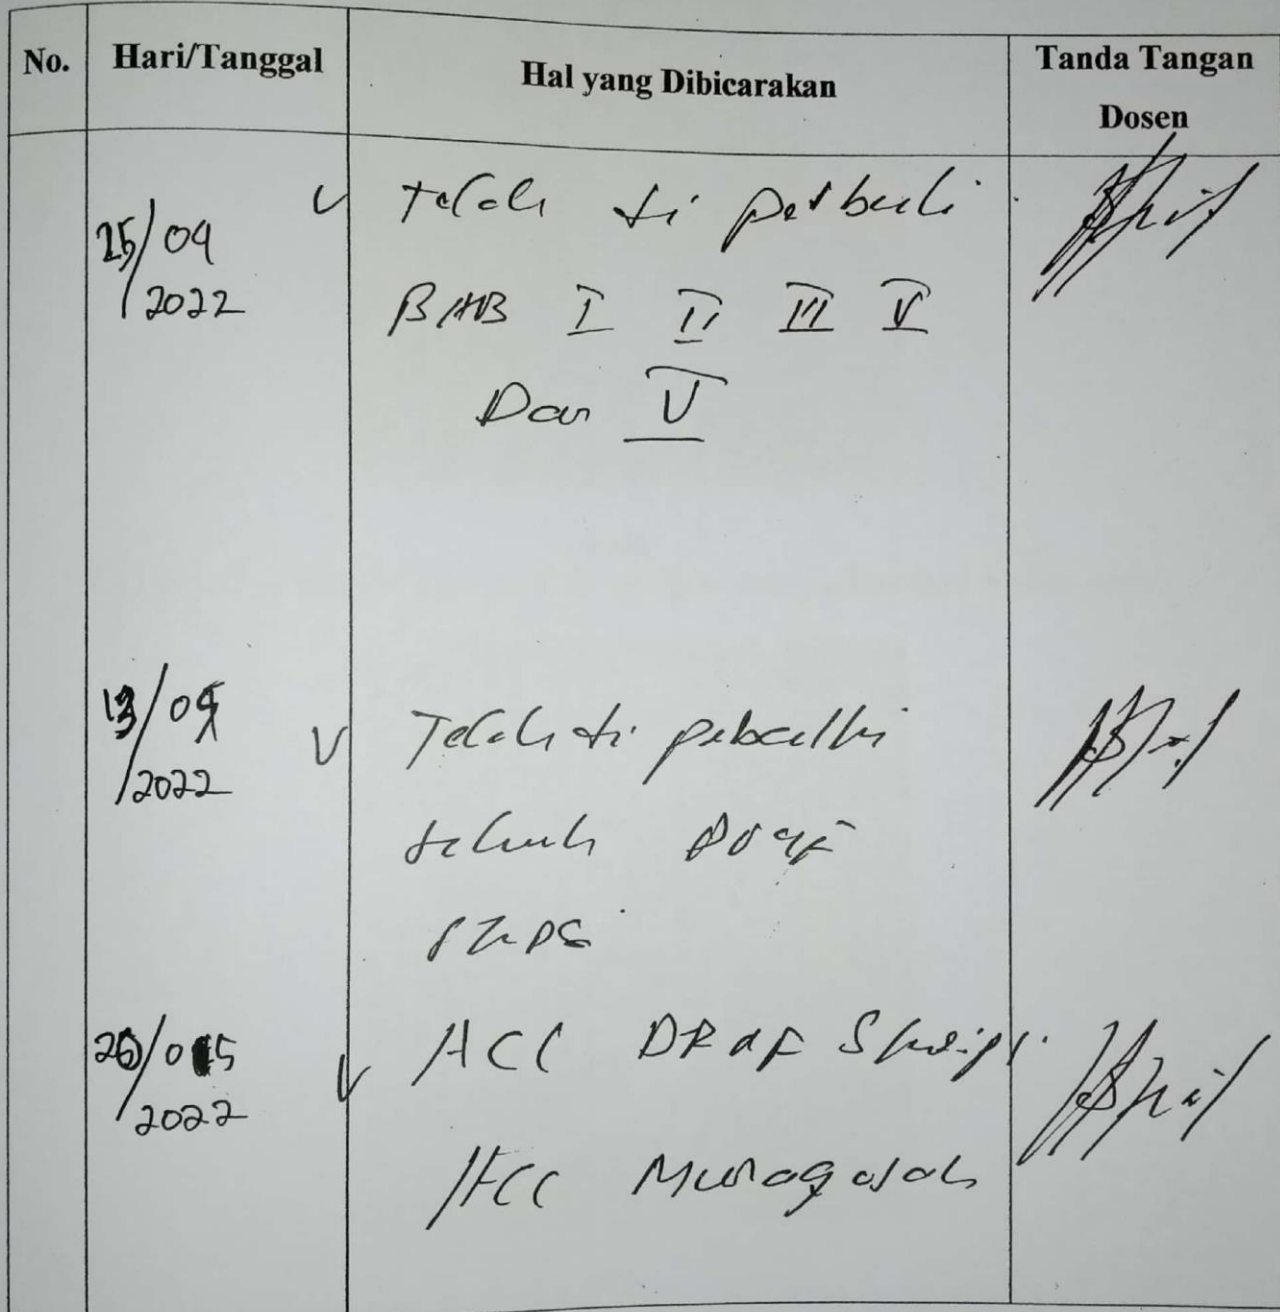 No. Hari/Tanggal Hal yang Dibicarakan Tanda Tangan
Dosen
25/04
/2022
Telah di perbaiki
BAB I II III V
Dan V
13/05
/2022
Telah di
Draf
/05
/2022
ACC DRAF Skripsi
ACC Munaqasah